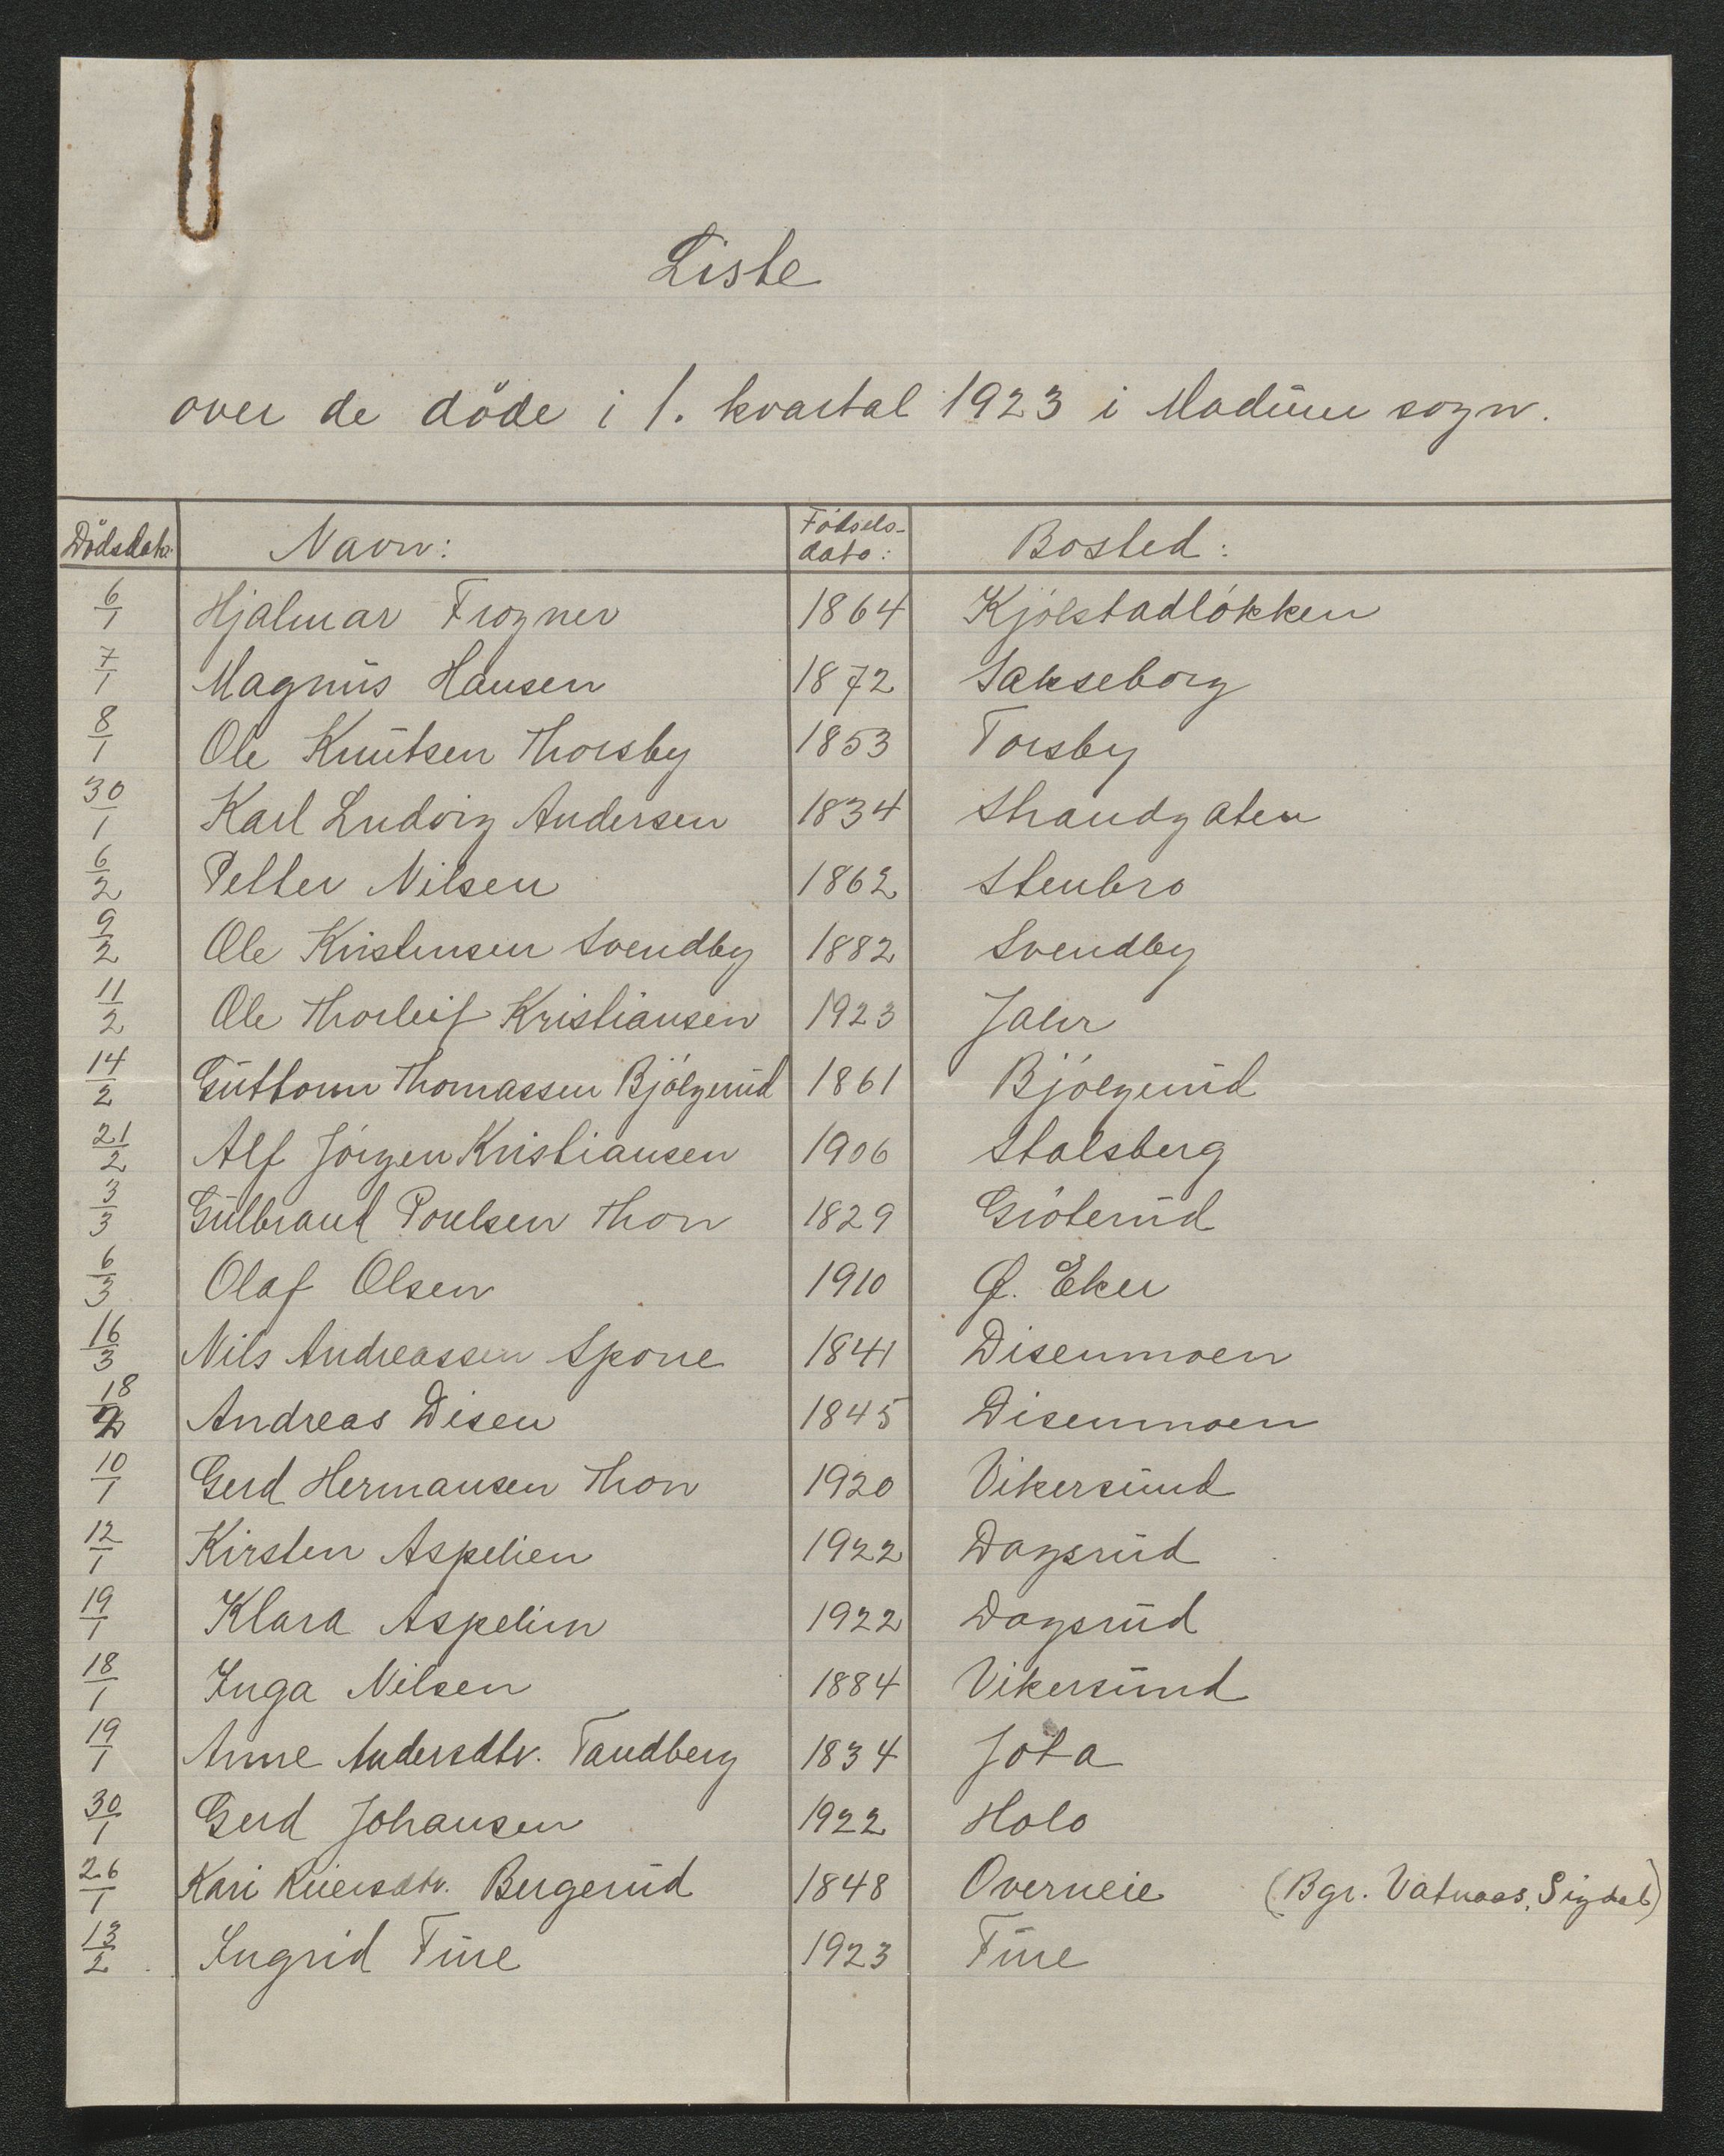 Liste
over de døde i 1. kvartal 1923 i Modum sogn.
Dødsdato Navn: Fødsels-dato: Bosted:
6/1 Hjalmar Frogner 1864 Kjølstadløkken
7/1 Magnus Hansen 1872 Sakseborg
8/1 Ole Knutsen Thorsby 1853 Torsby
30/1 Karl Ludvig Andersen 1834 Strandgaten
6/2 Petter Nilsen 1862 Stenbro
9/2 Ole Kristensen Svendby 1882 Svendby
11/2 Ole Thorleif Kristiansen 1923 Jahr
14/2 Guttorm Thomassen Bjølgerud 1861 Bjølgerud
21/2 Alf Jørgen Kristiansen 1906 Stalsberg
3/3 Gulbrand Poulsen Thon 1829 Grøterud
6/3 Olaf Olsen 1910 Ø. Eker
16/3 Nils Andreassen Spone 1841 Disenmoen
18/2 Andreas Disen 1845 Disenmoen
10/1 Gerd Hermansen Thon 1920 Vikersund
12/1 Kirsten Aspelien 1922 Dagsrud
19/1 Klara Aspelien 1922 Dagsrud
18/1 Inga Nilsen 1884 Vikersund
19/1 Anne Andersdtr. Tandberg 1834 Jota
30/1 Gerd Johansen 1922 Holo
26/1 Kari Reiersdtr. Bergerud 1848 Overneie (Bgr. Vatnaas, Sigdal)
13/2 Ingrid Fure 1923 Fure